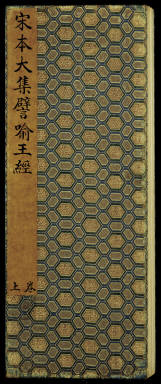 宋本大集譬喻王經
上